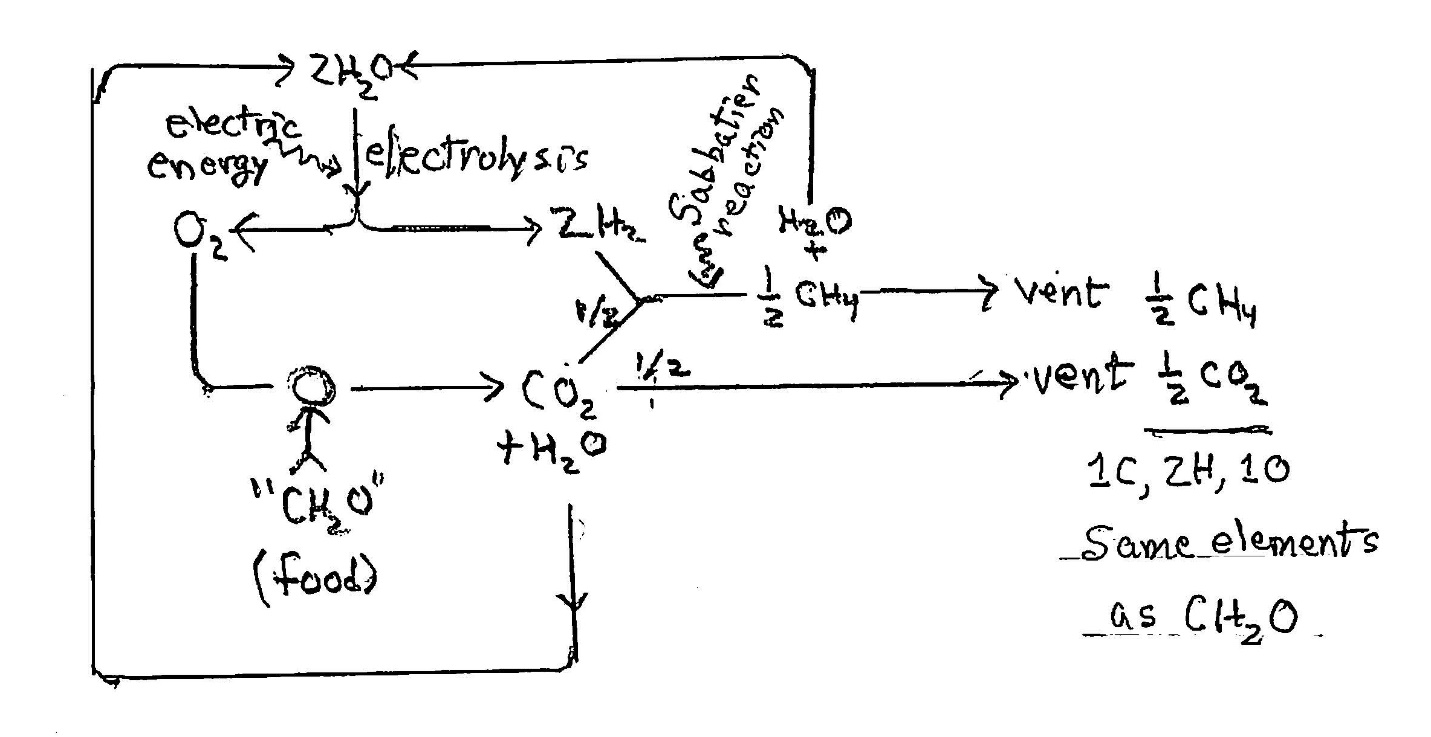 2H₂O
electric
energy
electrolysis
O₂
2H₂
Sabbatier
reaction
H₂O
+
1/2
½ CH₄
vent ½ CH₄
CO₂
+ H₂O
1/2
vent ½ CO₂
"CH₂O"
(food)
1C, 2H, 1O
Same elements
as CH₂O